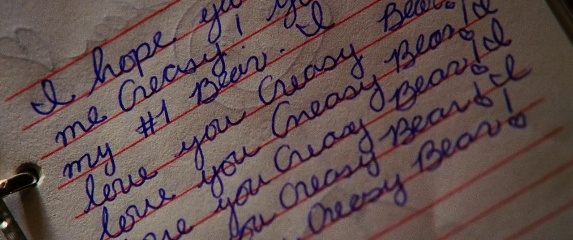 I hope you
me Creasy! I
my #1 Bear. I
love you Creasy Bear
love you Creasy Bear! I
love you Creasy Bear! I
you Creasy Bear! I
Creasy Bear!